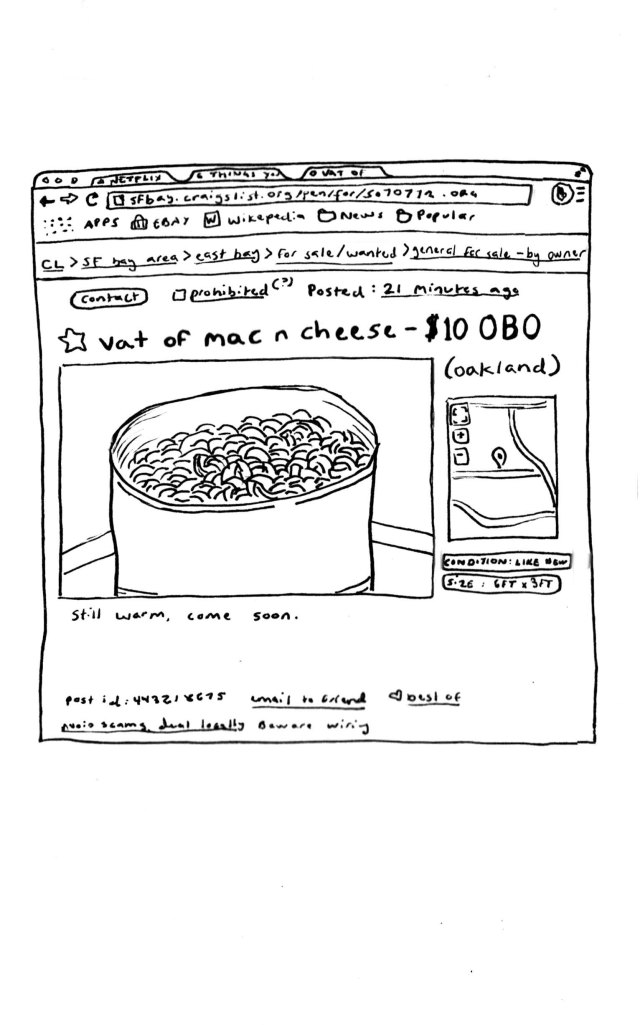 NETFLIX 6 THINGS YO VAT OF
sfbay.craigslist.org/
APPS EBAY W Wikepedia News Popular
CL > SF bay area > east bay > for sale/wanted > general for sale - by owner
contact prohibited (?) Posted: 21 minutes ago
vat of mac n cheese - $10 OBO
(oakland)
+
-
CONDITION: LIKE NEW
SIZE : 6FT x 3FT
Still warm, come soon.
post id: email to friend best of
avoid scams, deal locally Beware wiring